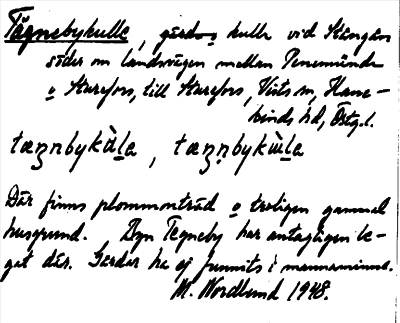 Tägnebykulle, gärde o kulle vid Stångån
söder om landsvägen mellan Penemünde
o Sturefors, till Sturefors, Vists sn, Hane-
kinds hd, Östg.l.
tæŋnbykùla, tæŋnbykùla
Där finns plommonträd o troligen gammal
husgrund. Byn Tegneby har antagligen le-
gat där. Gärdar ha ej funnits i mannaminne.
M. Nordlund 1948.